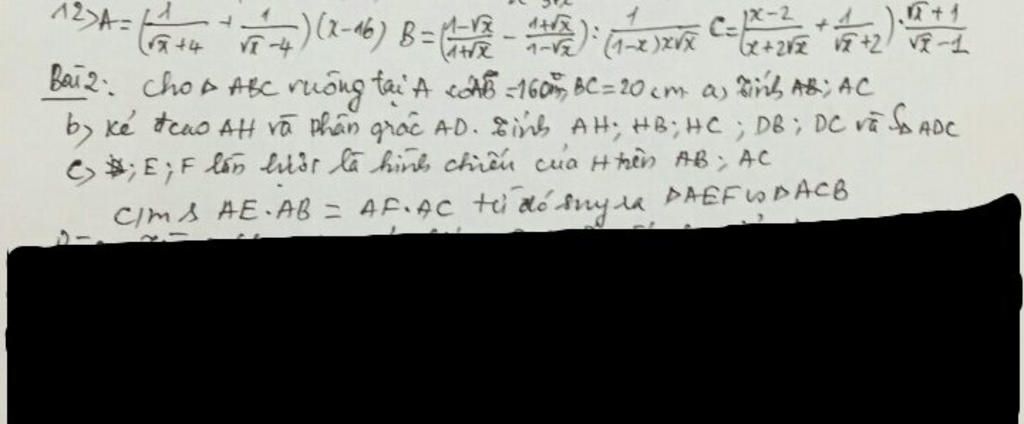 12> A = (1/(√x+4) + 1/(√x-4))(x-16) B = ((1-√x)/(1+√x) - (1+√x)/(1-√x)) : (1/(1-x)x√x) C = ((x-2)/(x+2√x) + 1/(√x+2)) . (√x+1)/(√x-1)
Bài 2: Cho Δ ABC vuông tại A BC = 20 cm a, Tính AB; AC
b> Kẻ đcao AH và phân giác AD. Tính AH; HB; HC; DB; DC và S ADC
c> E; F lần lượt là hình chiếu của H trên AB; AC
C/m AE.AB = AF.AC từ đó suy ra ΔAEF ∽ ΔACB